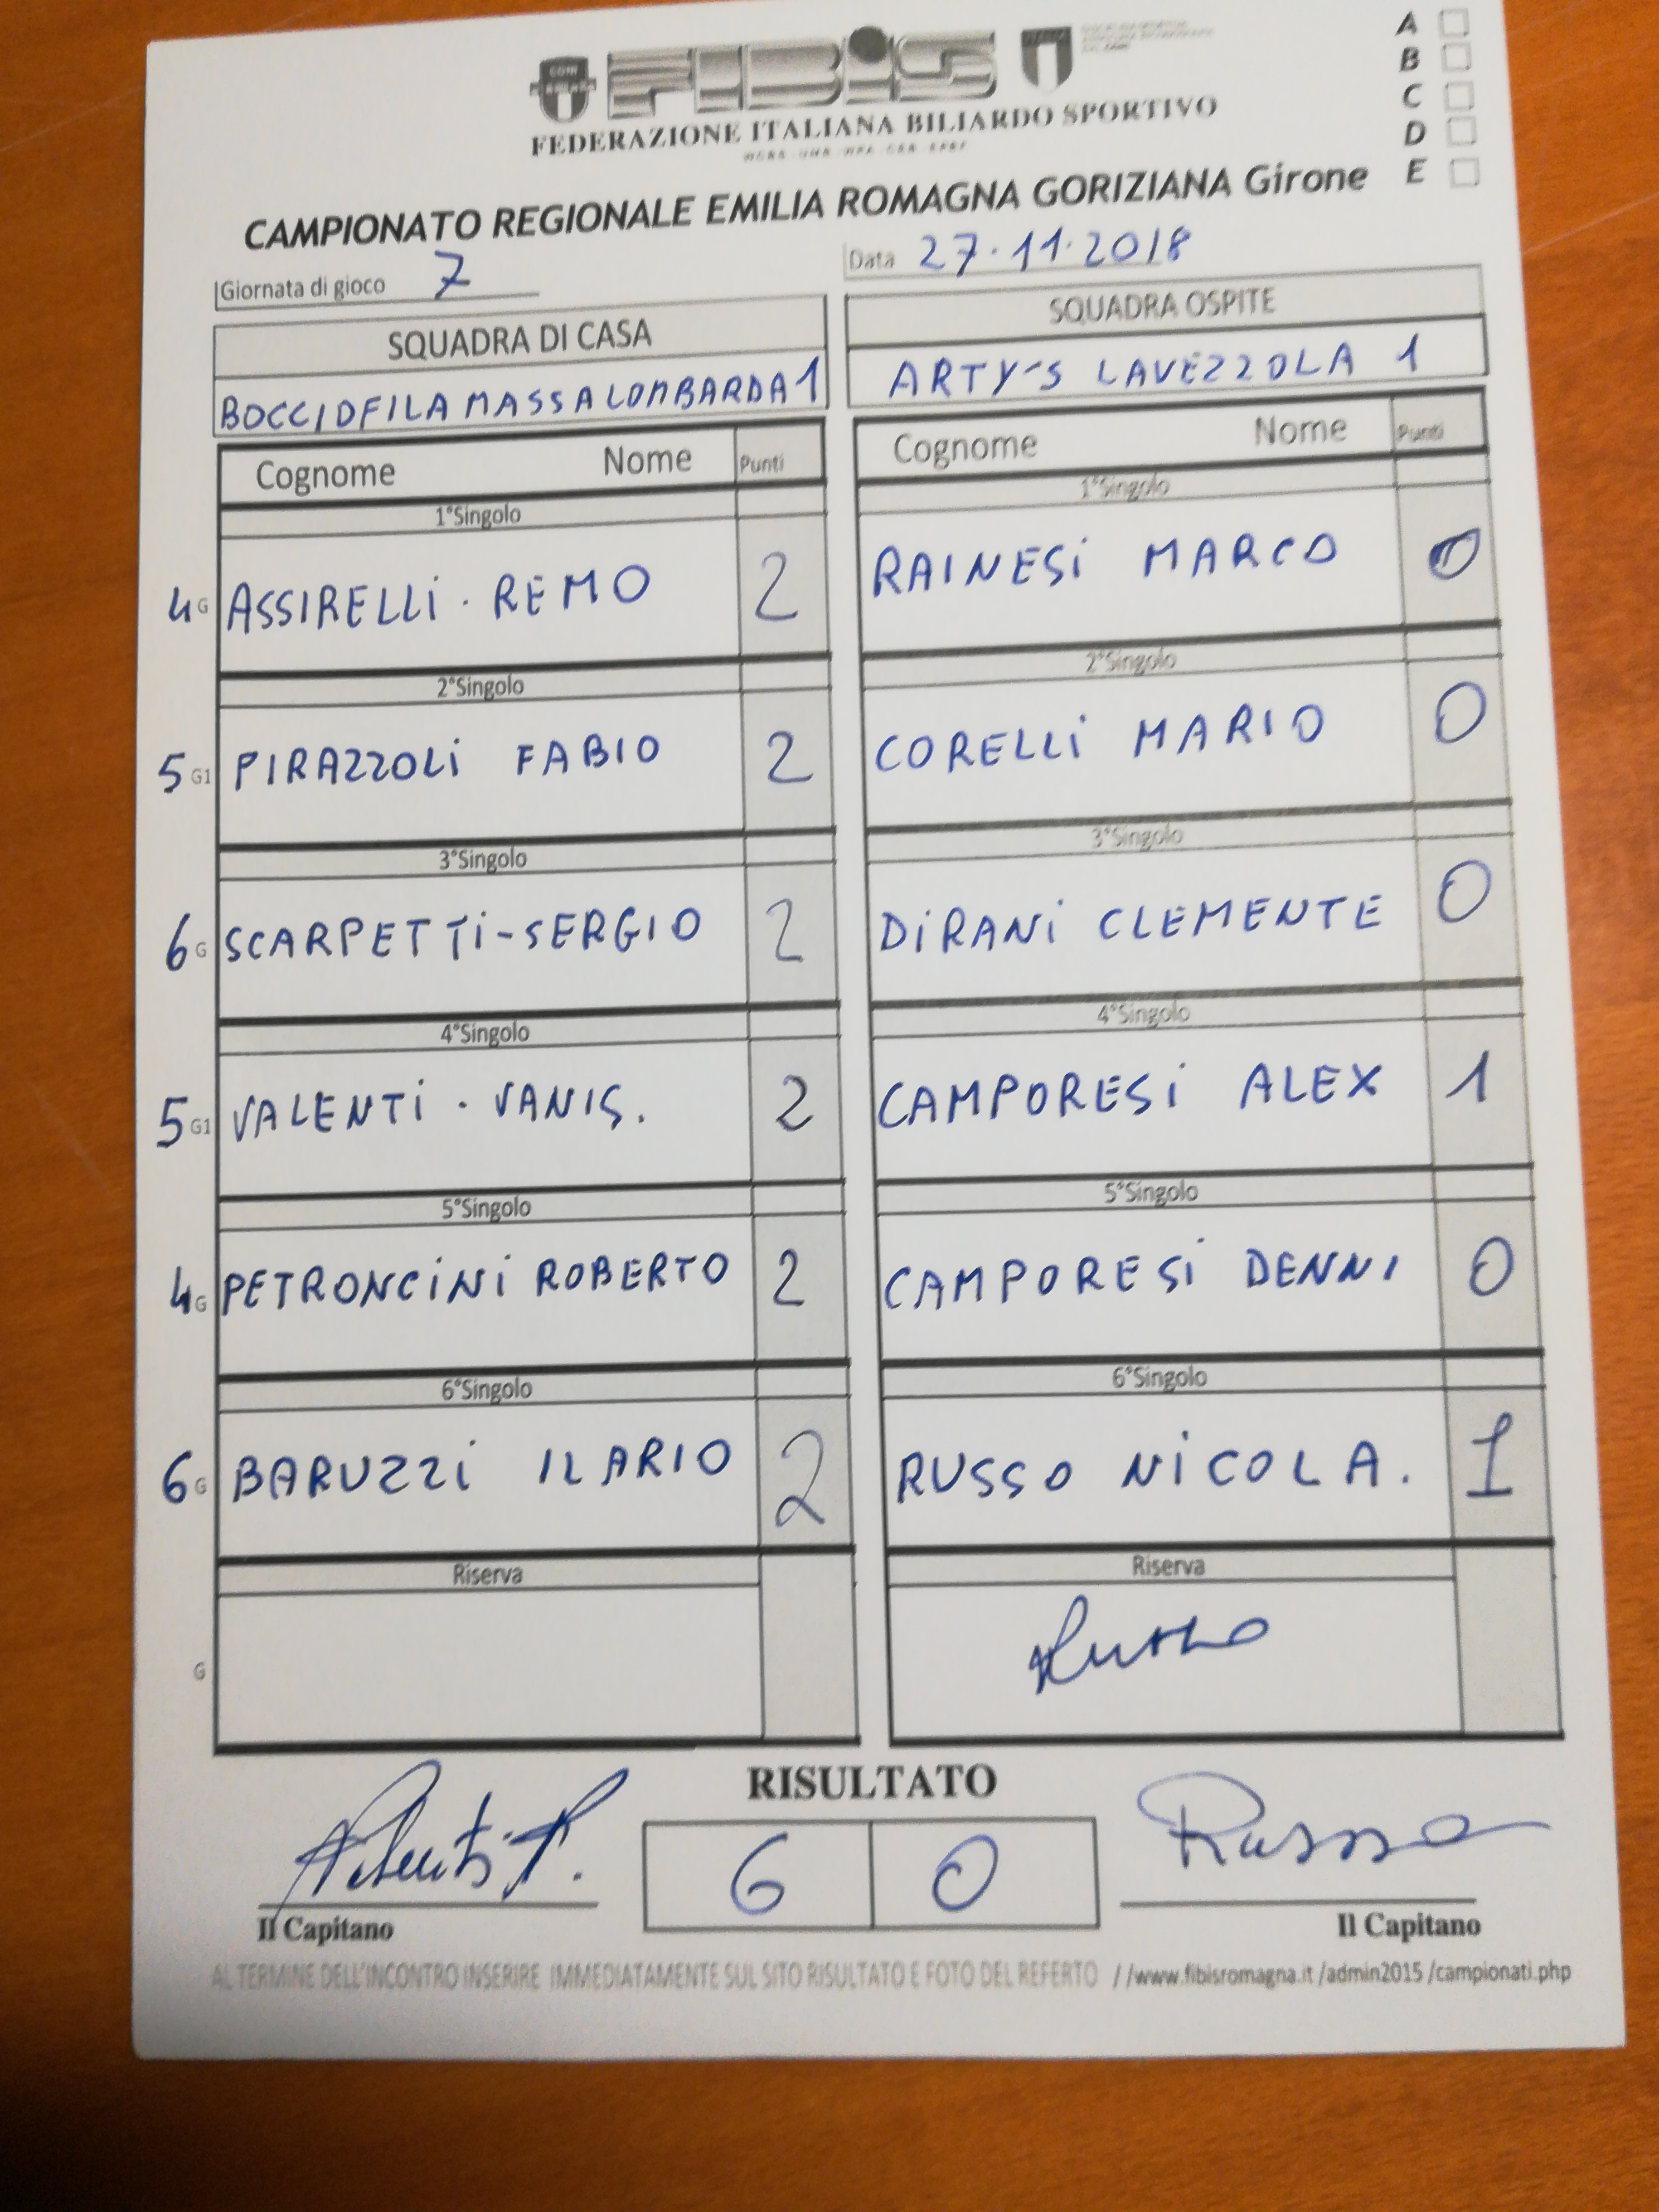 FIBiS
CONI
FEDERAZIONE ITALIANA BILIARDO SPORTIVO
A
B
C
D
E
CAMPIONATO REGIONALE EMILIA ROMAGNA GORIZIANA Girone
Giornata di gioco 7
Data 27.11.2018
SQUADRA DI CASA
SQUADRA OSPITE
BOCCIOFILA MASSA LOMBARDA 1
ARTY'S LAVEZZOLA 1
Cognome Nome Punti
Cognome Nome Punti
1°Singolo
1°Singolo
4 G ASSIRELLi . REMO 2
RAINESi MARCO 0
2°Singolo
2°Singolo
5 G1 PIRAZZOLi FABIO 2
CORELLi MARIO 0
3°Singolo
3°Singolo
6 G SCARPETTi-SERGIO 2
DiRANi CLEMENTE 0
4°Singolo
4°Singolo
5 G1 VALENTi . VANIS. 2
CAMPORESi ALEX 1
5°Singolo
5°Singolo
4 G PETRONCiNi ROBERTO 2
CAMPORESi DENNI 0
6°Singolo
6°Singolo
6 G BARUZZi ILARIO 2
RUSSO NiCOLA. 1
Riserva
Riserva
G
Russo
RISULTATO
6 0
Russo
Il Capitano
Il Capitano
AL TERMINE DELL'INCONTRO INSERIRE IMMEDIATAMENTE SUL SITO RISULTATO E FOTO DEL REFERTO //www.fibisromagna.it /admin2015 /campionati.php